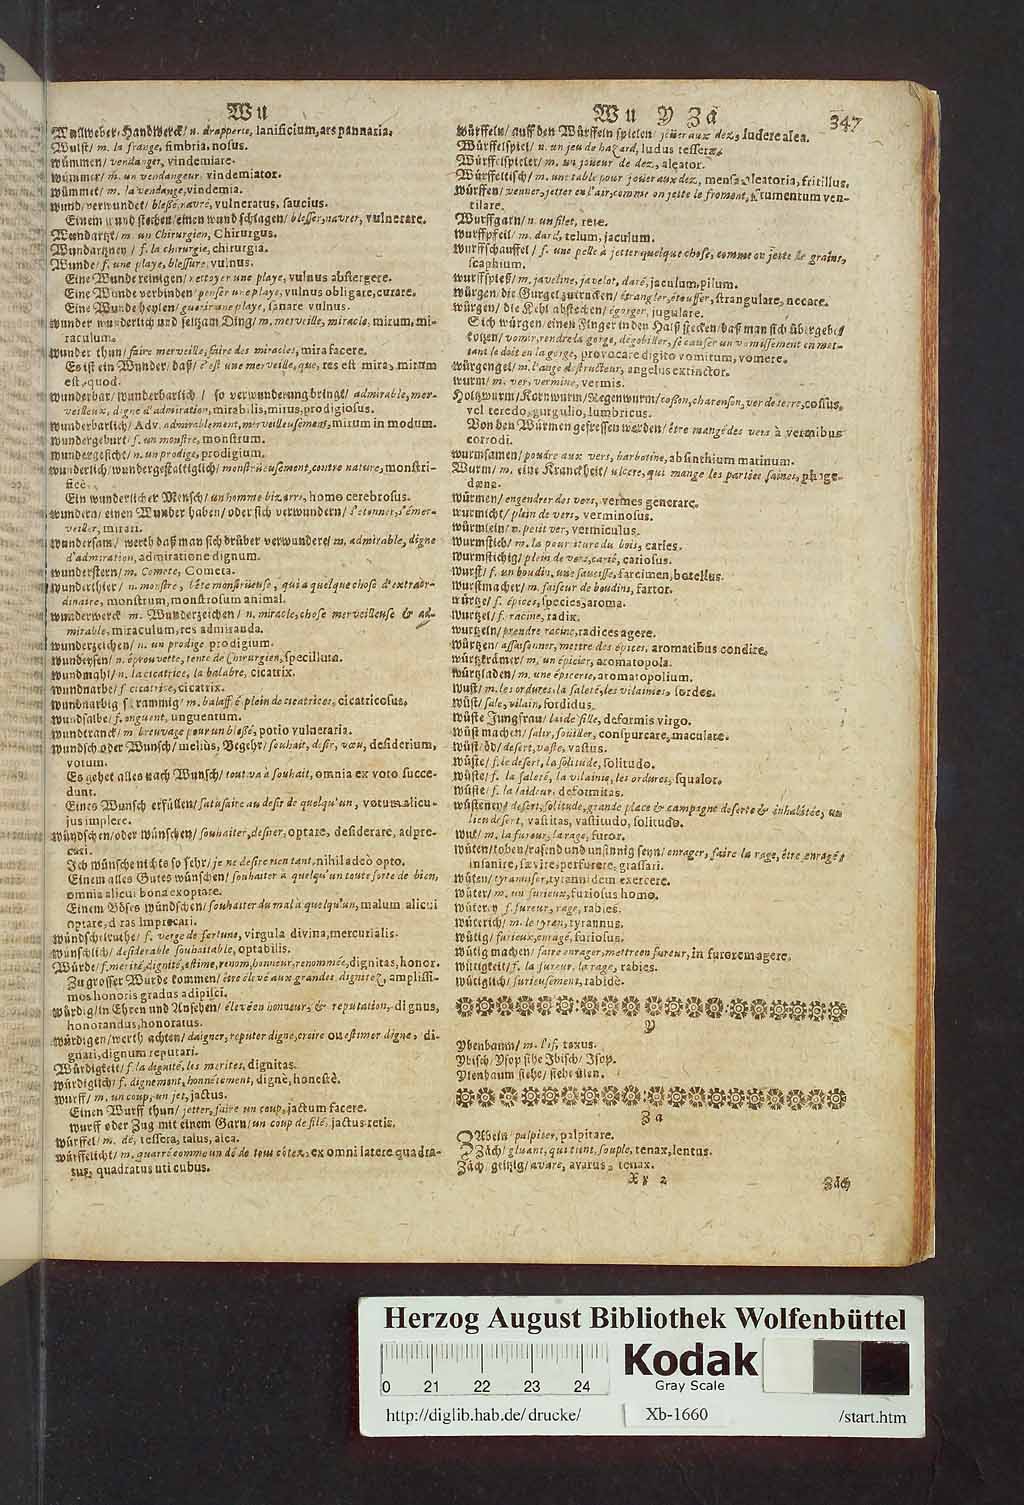 Wu
Wu Y Za 347
Wollweber-Handwerck/ n. drapperie, lanificium, ars pannaria.
Wulst/ m. la frange, fimbria, nosus.
wümmen/ vendanger, vindemiare.
wümmer/ m. un vendangeur, vindemiator.
wümmet/ m. la vendange, vindemia.
wund/ verwundet/ blessé, navré, vulneratus, saucius.
Einem wund stechen/ einen wund schlagen/ blesser, navrer, vulnerare.
Wundartzt/ m. un Chirurgien, Chirurgus.
Wundartzney/ f. la chirurgie, chirurgia.
Wunde/ f. une playe, blessure, vulnus.
Eine Wunde reinigen/ nettoyer une playe, vulnus abstergere.
Eine Wunde verbinden/ penser une playe, vulnus obligare, curare.
Eine Wunde heylen/ guerir une playe, sanare vulnus.
wunder wunderlich und seltzam Ding/ m. merveille, miracle, mirum, mi-
raculum.
wunder thun/ faire merveille, faire des miracles, mira facere.
Es ist ein Wunder/ daß/ c'est une merveille, que, res est mira, mirum
est, quod.
wunderbar/ wunderbarlich/ so verwunderung bringt/ admirable, mer-
veilleux, digne d'admiration, mirabilis, mirus, prodigiosus.
wunderbarlich/ Adv. admirablement, merveilleusement, mirum in modum.
wundergeburt/ f. un monstre, monstrum.
wundergesicht/ n. un prodige, prodigium.
wunderlich/ wundergestaltiglich/ monstrüeusement, contre nature, monstri-
ficè.
Ein wunderlicher Mensch/ un homme bizarre, homo cerebrosus.
wundern/ einen Wunder haben/ oder sich verwundern/ s'etonner, s'émer-
veiller, mirari.
wundersam/ werth daß man sich drüber verwundere/ m. admirable, digne
d'admiration, admiratione dignum.
wunderstern/ m. Comete, Cometa.
wunderthier/ n. monstre, bête monstrüeuse, qui a quelque chose d'extraor-
dinaire, monstrum, monstrosum animal.
wunderwerck m. Wunderzeichen/ n. miracle, chose merveilleuse & ad-
mirable, miraculum, res admiranda.
wunderzeichen/ n. un prodige prodigium.
wundeysen/ n. éprouvette, tente de Chirurgien, specillum.
wundmahl/ n. la cicatrice, la balafre, cicatrix.
wundnarbe/ f. cicatrice, cicatrix.
wundnarbig schrammig/ m. balaffré plein de cicatrices, cicatricosus.
wundsalbe/ f. onguent, unguentum.
wundtranck/ m. breuvage pour un blessé, potio vulneraria.
wundsch oder Wunsch/ melius, Begehr/ souhait, desir, vœu, desiderium,
votum.
Es gehet alles nach Wunsch/ tout va à souhait, omnia ex voto succe-
dunt.
Eines Wunsch erfüllen/ satisfaire au desir de quelqu'un, votum alicu-
jus implere.
wündschen/ oder wünschen/ souhaiter, desirer, optare, desiderare, adpre-
cari.
Ich wünsche nichts so sehr/ je ne desire rien tant, nihil adeò opto.
Einem alles Gutes wünschen/ souhaiter à quelqu'un toute sorte de bien,
omnia alicui bona exoptare.
Einem Böses wündschen/ souhaiter du mal à quelqu'un, malum alicui
optare, diras imprecari.
wündschelruthe/ f. verge de fortune, virgula divina, mercurialis.
wünschlich/ desiderable souhaitable, optabilis.
Würde/ f. merite, dignité, estime, renom, honneur, renommée, dignitas, honor.
Zu grosser Würde kommen/ être élevé aux grandes dignitez, amplissi-
mos honoris gradus adipisci.
würdig/ in Ehren und Ansehen/ élevé en honneur, & reputation, dignus,
honorandus, honoratus.
würdigen/ werth achten/ daigner, reputer digne, croire ou estimer digne, di-
gnari, dignum reputari.
Würdigkeit/ f. la dignité, les merites, dignitas.
würdiglich/ f. dignement, honnétement, dignè, honestè.
wurff/ m. un coup, un jet, jactus.
Einen Wurff thun/ jetter, faire un coup, jactum facere.
wurff oder Zug mit einem Garn/ un coup de filé, jactus retis.
würffel/ m. dé, tessera, talus, alea.
würffelicht/ m. quarré comme un dé de tous côtez, ex omni latere quadra-
tus, quadratus uti cubus.
würffeln/ auff den Würffeln spielen/ joüer aux dez, ludere alea.
Würffelspiel/ n. un jeu de hazard, ludus tesseræ.
Würffelspieler/ m. un joueur de dez, aleator.
Würffeltisch/ m. une table pour joüer aux dez, mensa aleatoria, fritillus.
würffen/ venner, jetter en l'air, comme on jette le froment, frumentum ven-
tilare.
Wurffgarn/ n. un filet, rete.
wurffpfeil/ m. dard, telum, jaculum.
wurffschauffel/ f. une pelle à jetter quelque chose, comme on jette le graine,
scaphium.
wurffspieß/ m. javeline, javelot, dard, jaculum, pilum.
würgen/ die Gurgel zutrucken/ étrangler, étouffer, strangulare, necare.
würgen/ die Kehl abstechen/ égorger, jugulare.
Sich würgen/ einen Finger in den Halß stecken/ daß man sich übergebe/
kotzen/ vomir, rendre la gorge, degobiller, se causer un vomissement en met-
tant le doit en la gorge, provocare digito vomitum, vomere.
würgengel/ m. l'ange destructeur, angelus extinctor.
wurm/ m. ver, vermine, vermis.
Holtzwurm/ Kornwurm/ Regenwurm/ cosson, charenson, ver de terre, cossus,
vel teredo, gurgulio, lumbricus.
Von den Würmen gefressen werden/ être mangé des vers à vermibus
corrodi.
wurmsamen/ poudre aux vers, barbotine, absinthium marinum.
Wurm/ m. eine Kranckheit/ ulcere, qui mange les parties saines, phage-
dæna.
würmen/ engendrer des vers, vermes generare.
wurmicht/ plein de vers, verminosus.
würmlein/ n. petit ver, vermiculus.
wurmstich/ m. la pourriture du bois, caries.
wurmstichig/ plein de vers, carié, cariosus.
wurst/ f. un boudin, une saucisse, farcimen, botellus.
wurstmacher/ m. faiseur de boudins, fartor.
würtze/ f. épices, species, aroma.
wurtzel/ f. racine, radix.
wurtzeln/ prendre racine, radices agere.
würtzen/ assaisonner, mettre des épices, aromatibus condire.
würtzkrämer/ m. un épicier, aromatopola.
würtzladen/ m. une épicerie, aromatopolium.
wust/ m. les ordures, la saleté, les vilainies, sordes.
wüst/ sale, vilain, sordidus.
wüste Jungfrau/ laide fille, deformis virgo.
wüst machen/ salir, soüiller, conspurcare, maculare.
wüst/ öd/ desert, vaste, vastus.
wüste/ f. le desert, la solitude, solitudo.
wüste/ f. la saleté, la vilainie, les ordures, squalor.
wüste/ f. la laideur, deformitas.
wüsteney/ desert, solitude, grande place & campagne deserte & inhabitée, un
lieu desert, vastitas, vastitudo, solitudo.
wut/ m. la fureur, la rage, furor.
wüten/ toben/ rasend und unsinnig seyn/ enrager, faire la rage, être enragé/
insanire, sævire, perfurere, grassari.
wüten/ tyranniser, tyrannidem exercere.
wüter/ m. un furieux, furiosus homo.
wüterey f. fureur, rage, rabies.
wüterich/ m. le tyran, tyrannus.
wütig/ furieux, enragé, furiosus.
wütig machen/ faire enrager, mettre en fureur, in furorem agere.
wütigkeit/ f. la fureur, la rage, rabies.
wütiglich/ furieusement, rabidè.
Y
Ybenbaum/ m. l'if, taxus.
Ybisch/ Ysop sihe Ibisch/ Isop.
Ylenbaum siehe/ siehe ülen.
Za
Zabeln/ palpiter, palpitare.
Zäch/ gluant, qui tient, souple, tenax, lentus.
Zäch/ geitzig/ avare, avarus, tenax.
Xx 2
Zäch
Herzog August Bibliothek Wolfenbüttel
0 21 22 23 24
Kodak
Gray Scale
http://diglib.hab.de/drucke/ Xb-1660 /start.htm